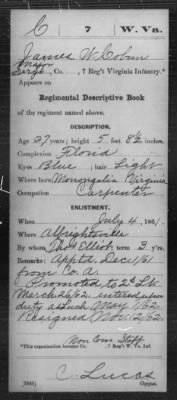 C 7 W. Va.
James W. Coburn
Major
Sergt, Co. , 7 Reg't Virginia Infantry.*
Appears on
Regimental Descriptive Book
of the regiment named above.
DESCRIPTION.
Age 27 years; height 5 feet 8½ inches.
Complexion Florid
Eyes Blue; hair Light
Where born Monongalia Virginia
Occupation Carpenter
ENLISTMENT.
When July 4, 1861.
Where
By whom Thos Elliot term 3 y'rs.
Remarks: Apptd Dec 1/61
from Co. A.
Promoted to 2d Lt
March 26/62. entered upon
duty as such May 1/62.
Resigned Nov. 12/62.
Non Com. Staff
*This organization became Co. , 7 Reg't W. Va. Inf.
C. Lucas
Copyist.